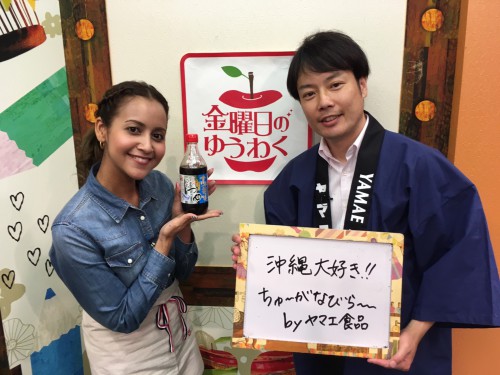 金曜日の
ゆうわく
YAMAE
沖縄大好き!!
ちゅ〜がなびら〜
by ヤマエ食品